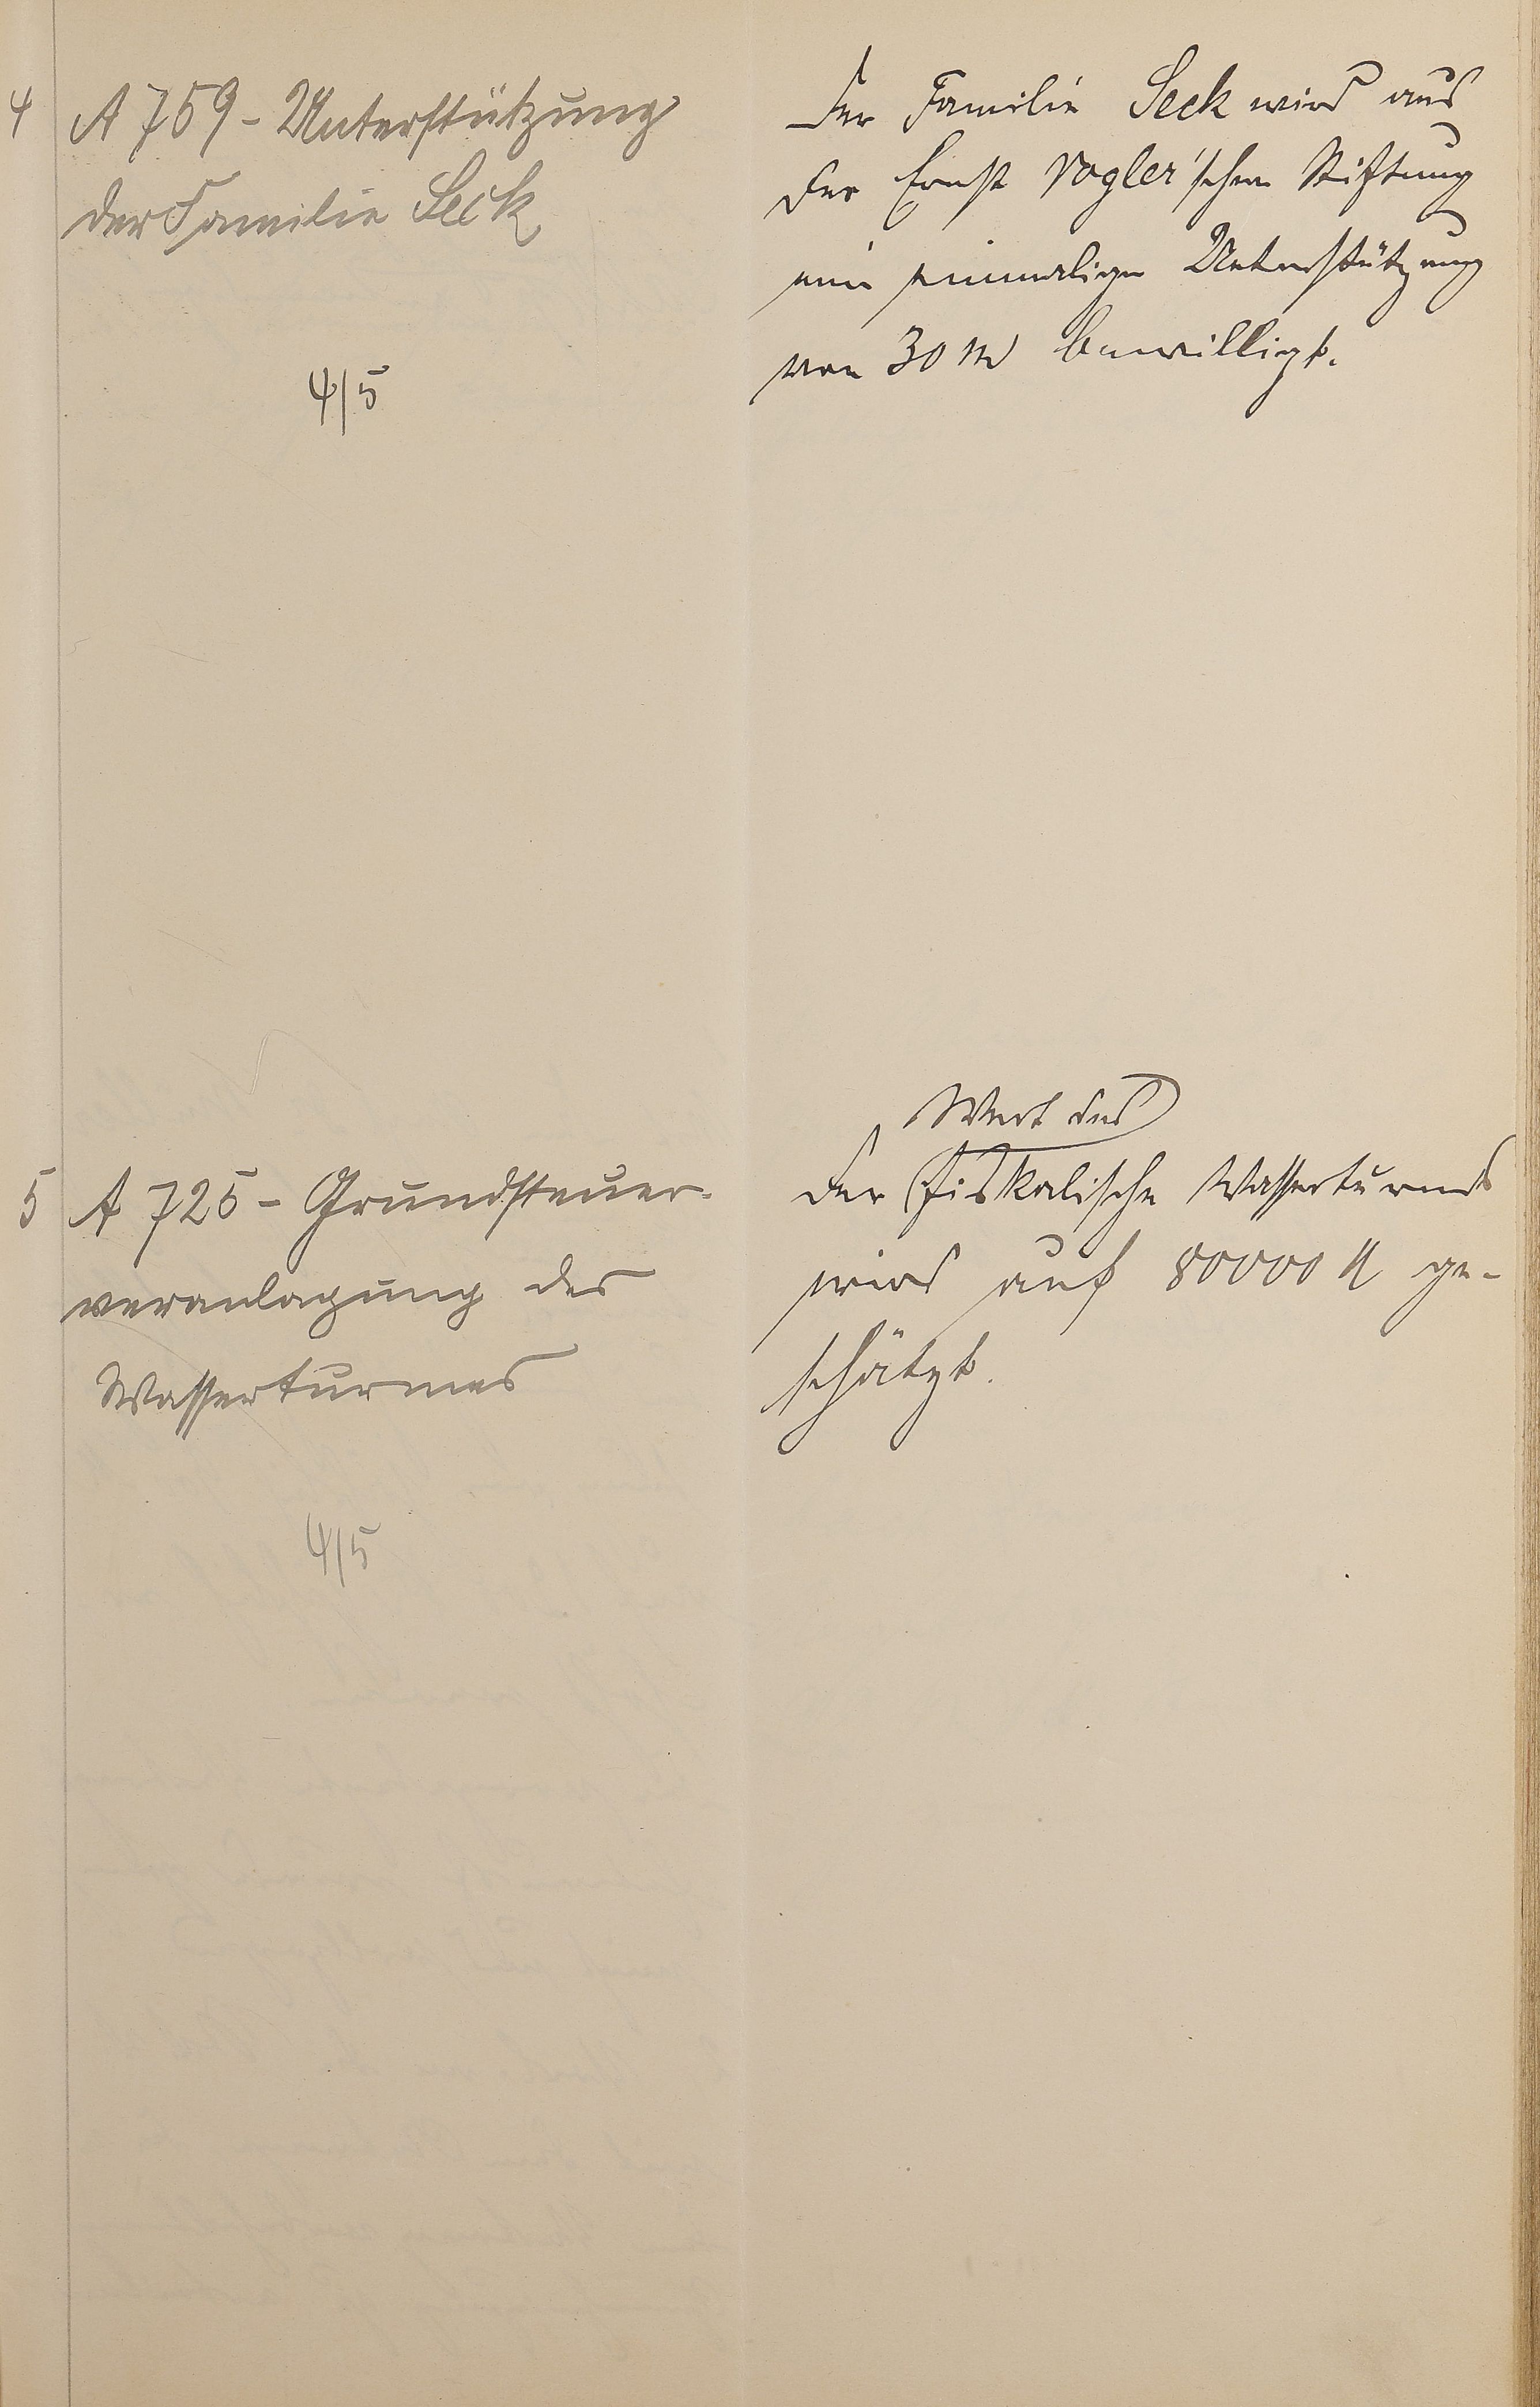 4 A 759 - Unterstützung
der Familie Seck
4/5
Der Familie Seck wird aus
der Ernst Vogler'schen Stiftung
eine einmalige Unterstützung
von 30 M bewilligt.
5 A 725 - Grundsteuer-
veranlagung des
Wasserturmes
4/5
Wert des
Der fiskalische Wasserturmes
wird auf 80000 M ge-
schätzt.